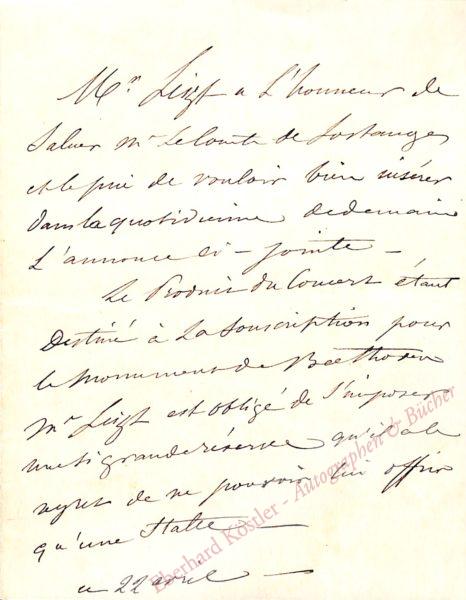 Mr. Liszt a l'honneur de
saluer Mr le Comte de Lostanges
et le prie de vouloir bien insérer
dans la quotidienne de demain
l'annonce ci-jointe -
Le Produit du Concert étant
Destiné à la Souscription pour
le Monument de Beethoven
Mr Liszt est obligé de s'imposer
une si grande réserve qu'il a le
regret de ne pouvoir lui offrir
qu'une Stalle -
ce 22 avril -
Eberhard Köstler - Autographen & Bücher